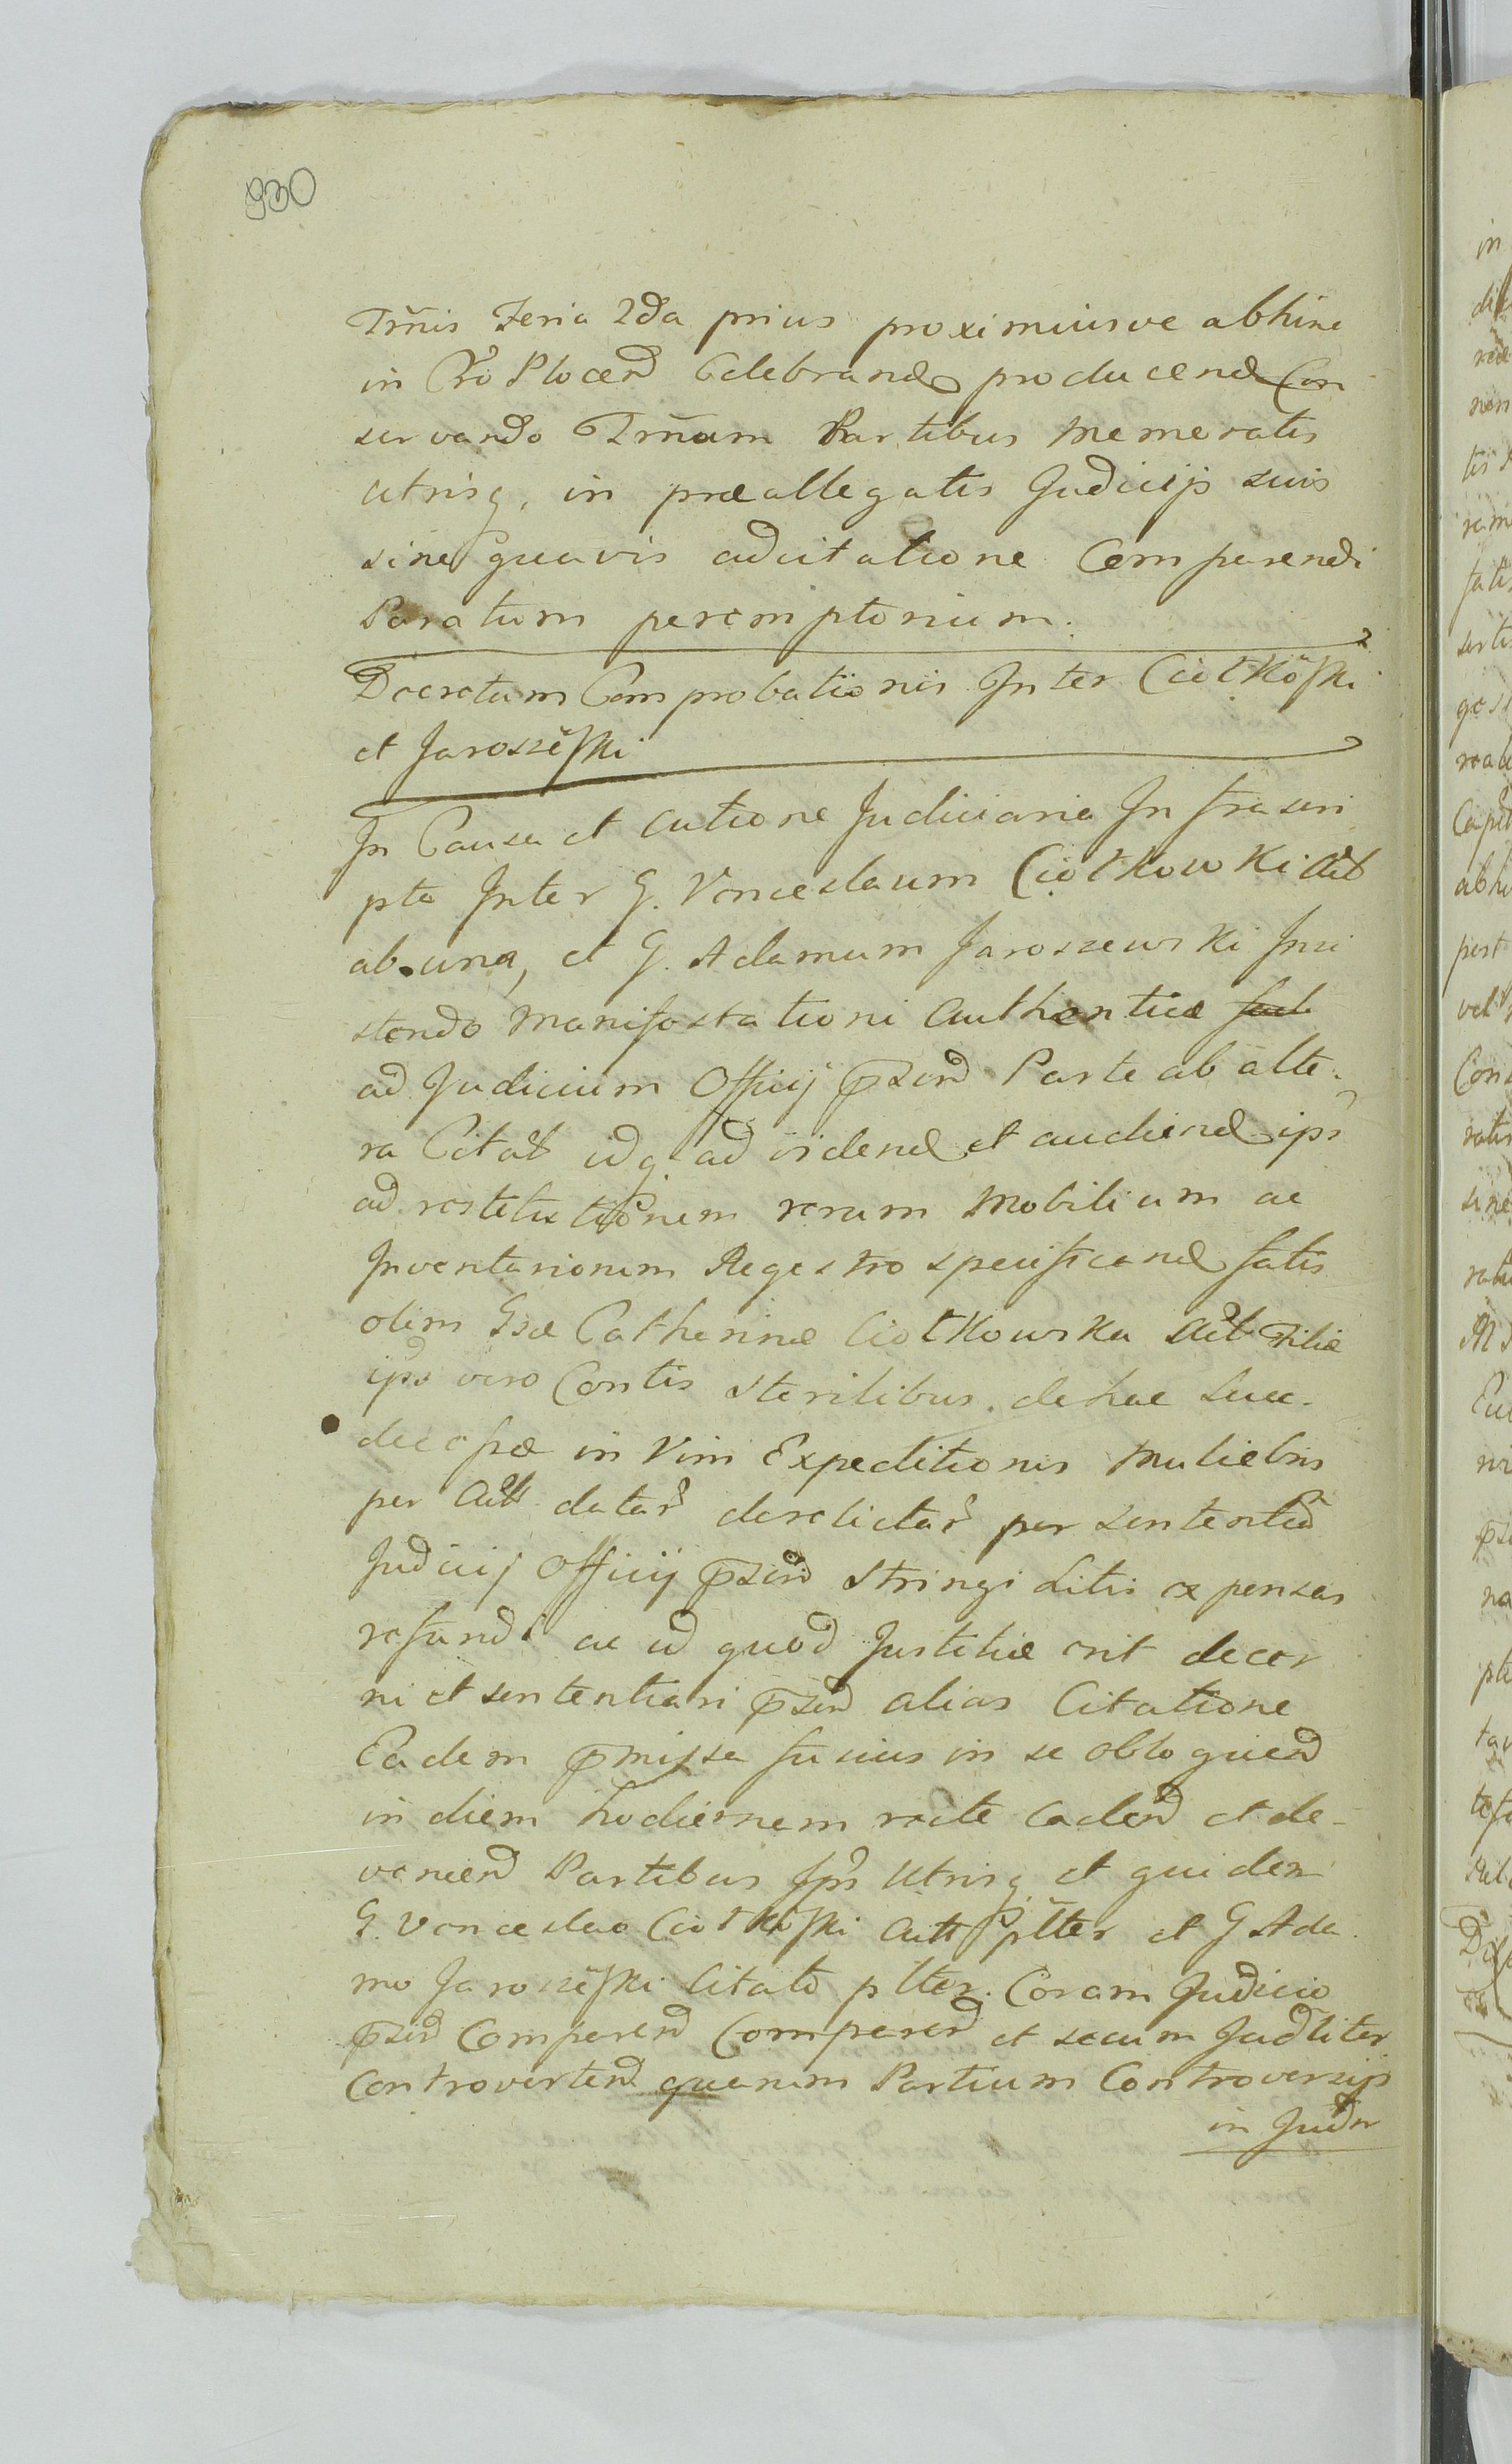 930
Trm̃is Feria 2da prius proximiusve abhinc
in Cro Plocen̄ Celebrand producend Con
servando Trm̃um Partibus Memoratis
utrisq, in præallegatis Judicijs suis
sine quavis adcitatione Comparendi
Paratum peremptorium.
Decretum Comprobationis Inter Ciołkoski
et Jaroszeski
In Causa et actione Judiciaria Infrascri
pta Inter G. Venceslaum Ciołkowski Act
ab una, et G. Adamum Jaroszewski Insi
stendo Manifestationi Authenticæ
ad Judicium Officij p̄sen̄ Parte ab alte-
ra Citat idq ad videnđ et audiend ips
ad restitutionem rerum Mobilium ac
Inventariorum Regestro specificand fatis
olim Gsæ Catherinæ Ciołkowska Act Filiæ
ips vero Contis sterilibus. de hac Luce.
decessæ in Vim Expeditionis Muliebris
per Act datar derelictar per sententia
Judicij Officij p̄sen̄ stringi Litis expensas
refundi ac id quod Justitiæ erit decer
ni et sententiari p̄sen̄ alias Citatione
Eadem p̄missa fusius in se obloquen̄
in diem hodiernem recte caden̄ et de-
venien̄ Partibus Ips Utrisq et quidem
G. Venceslao Ciołkoski Act p̄lter et G Ada
mo Jaroszeski Citato plter. Coram Judicio
p̄sen̄ Comparen̄ Comparen̄ et secum Judliter
Controverten̄ quarum Partium Controversijs
in Judr